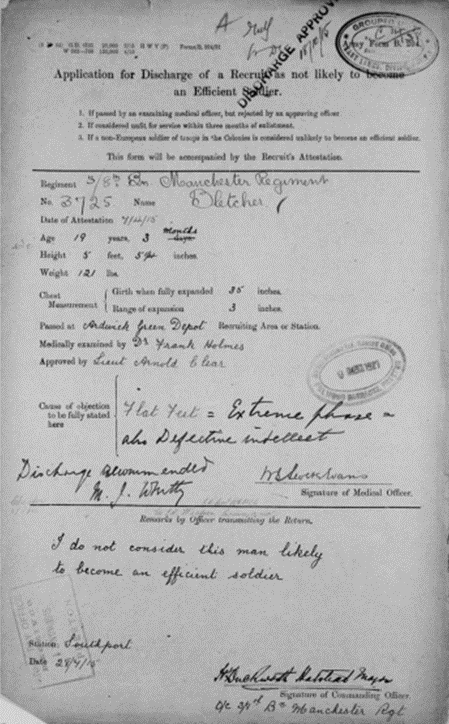 A
DISCHARGE APPROVED
Application for Discharge of a Recruit as not likely to become
an Efficient Soldier.
1. If passed by an examining medical officer, but rejected by an approving officer.
2. If considered unfit for service within three months of enlistment.
3. If a non-European soldier of troops in the Colonies is considered unlikely to become an efficient soldier.
This form will be accompanied by the Recruit's Attestation.
Regiment 3/8th Bn. Manchester Regiment
No. 3725 Name Bletcher
Date of Attestation
Age 19 years, 3 months days.
Height 5 feet, inches.
Weight 121 lbs.
Chest Measurement
Girth when fully expanded 35 inches.
Range of expansion 3 inches.
Passed at Ardwick Green Depot Recruiting Area or Station.
Medically examined by Dr Frank Holmes
Approved by Lieut Arnold Clear
Cause of objection to be fully stated here
Flat Feet = Extreme phase =
also Defective intellect
Discharge recommended
M. J. Whitty
Signature of Medical Officer.
Remarks by Officer transmitting the Return.
I do not consider this man likely
to become an efficient soldier
Station Southport
Date
Major
Signature of Commanding Officer.
Bn Manchester Rgt